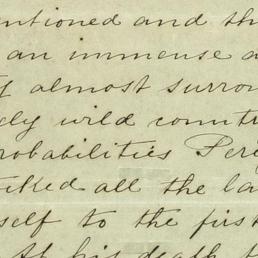 ntioned and th
an immense a
almost surrou
ely wild countr
robabilities Per
all the la
self to the first
At his death t